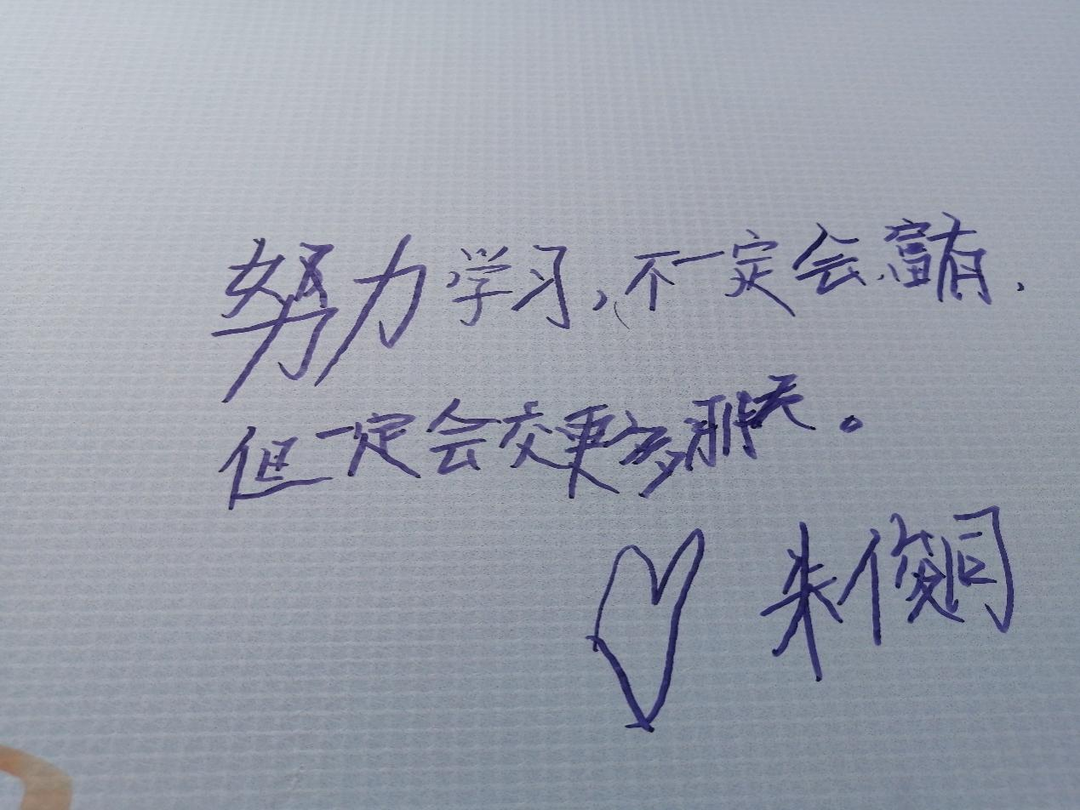 努力学习，不一定会富有，
但一定会交更多朋友。
朱俊同